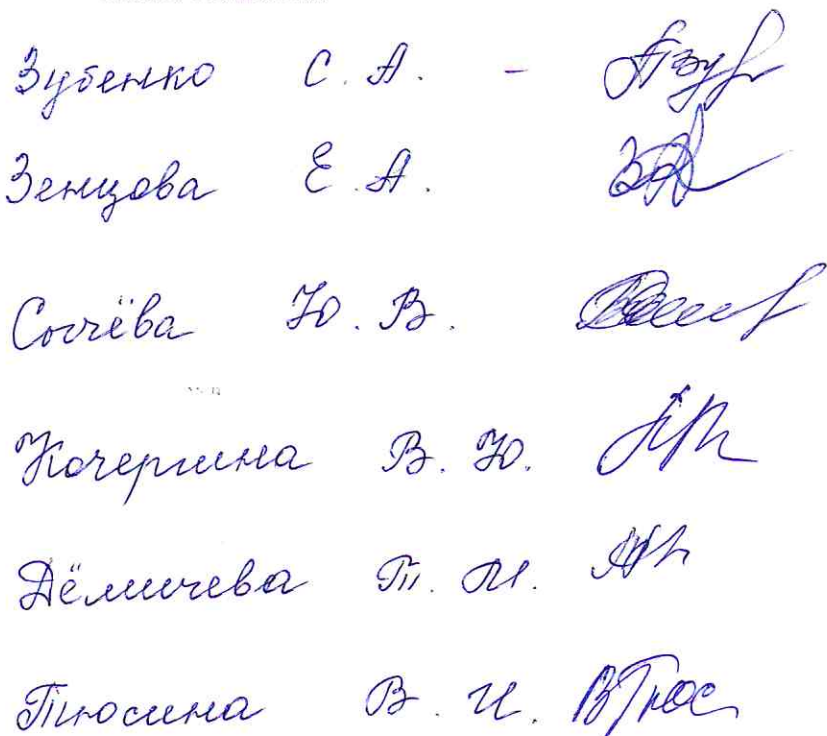 Зубенко С. А. -
Зенцова Е. А.
Сычёва Ю. В.
Кочергина В. Ю.
Дёмичева Т. М.
Тюсина В. И. ВТюс